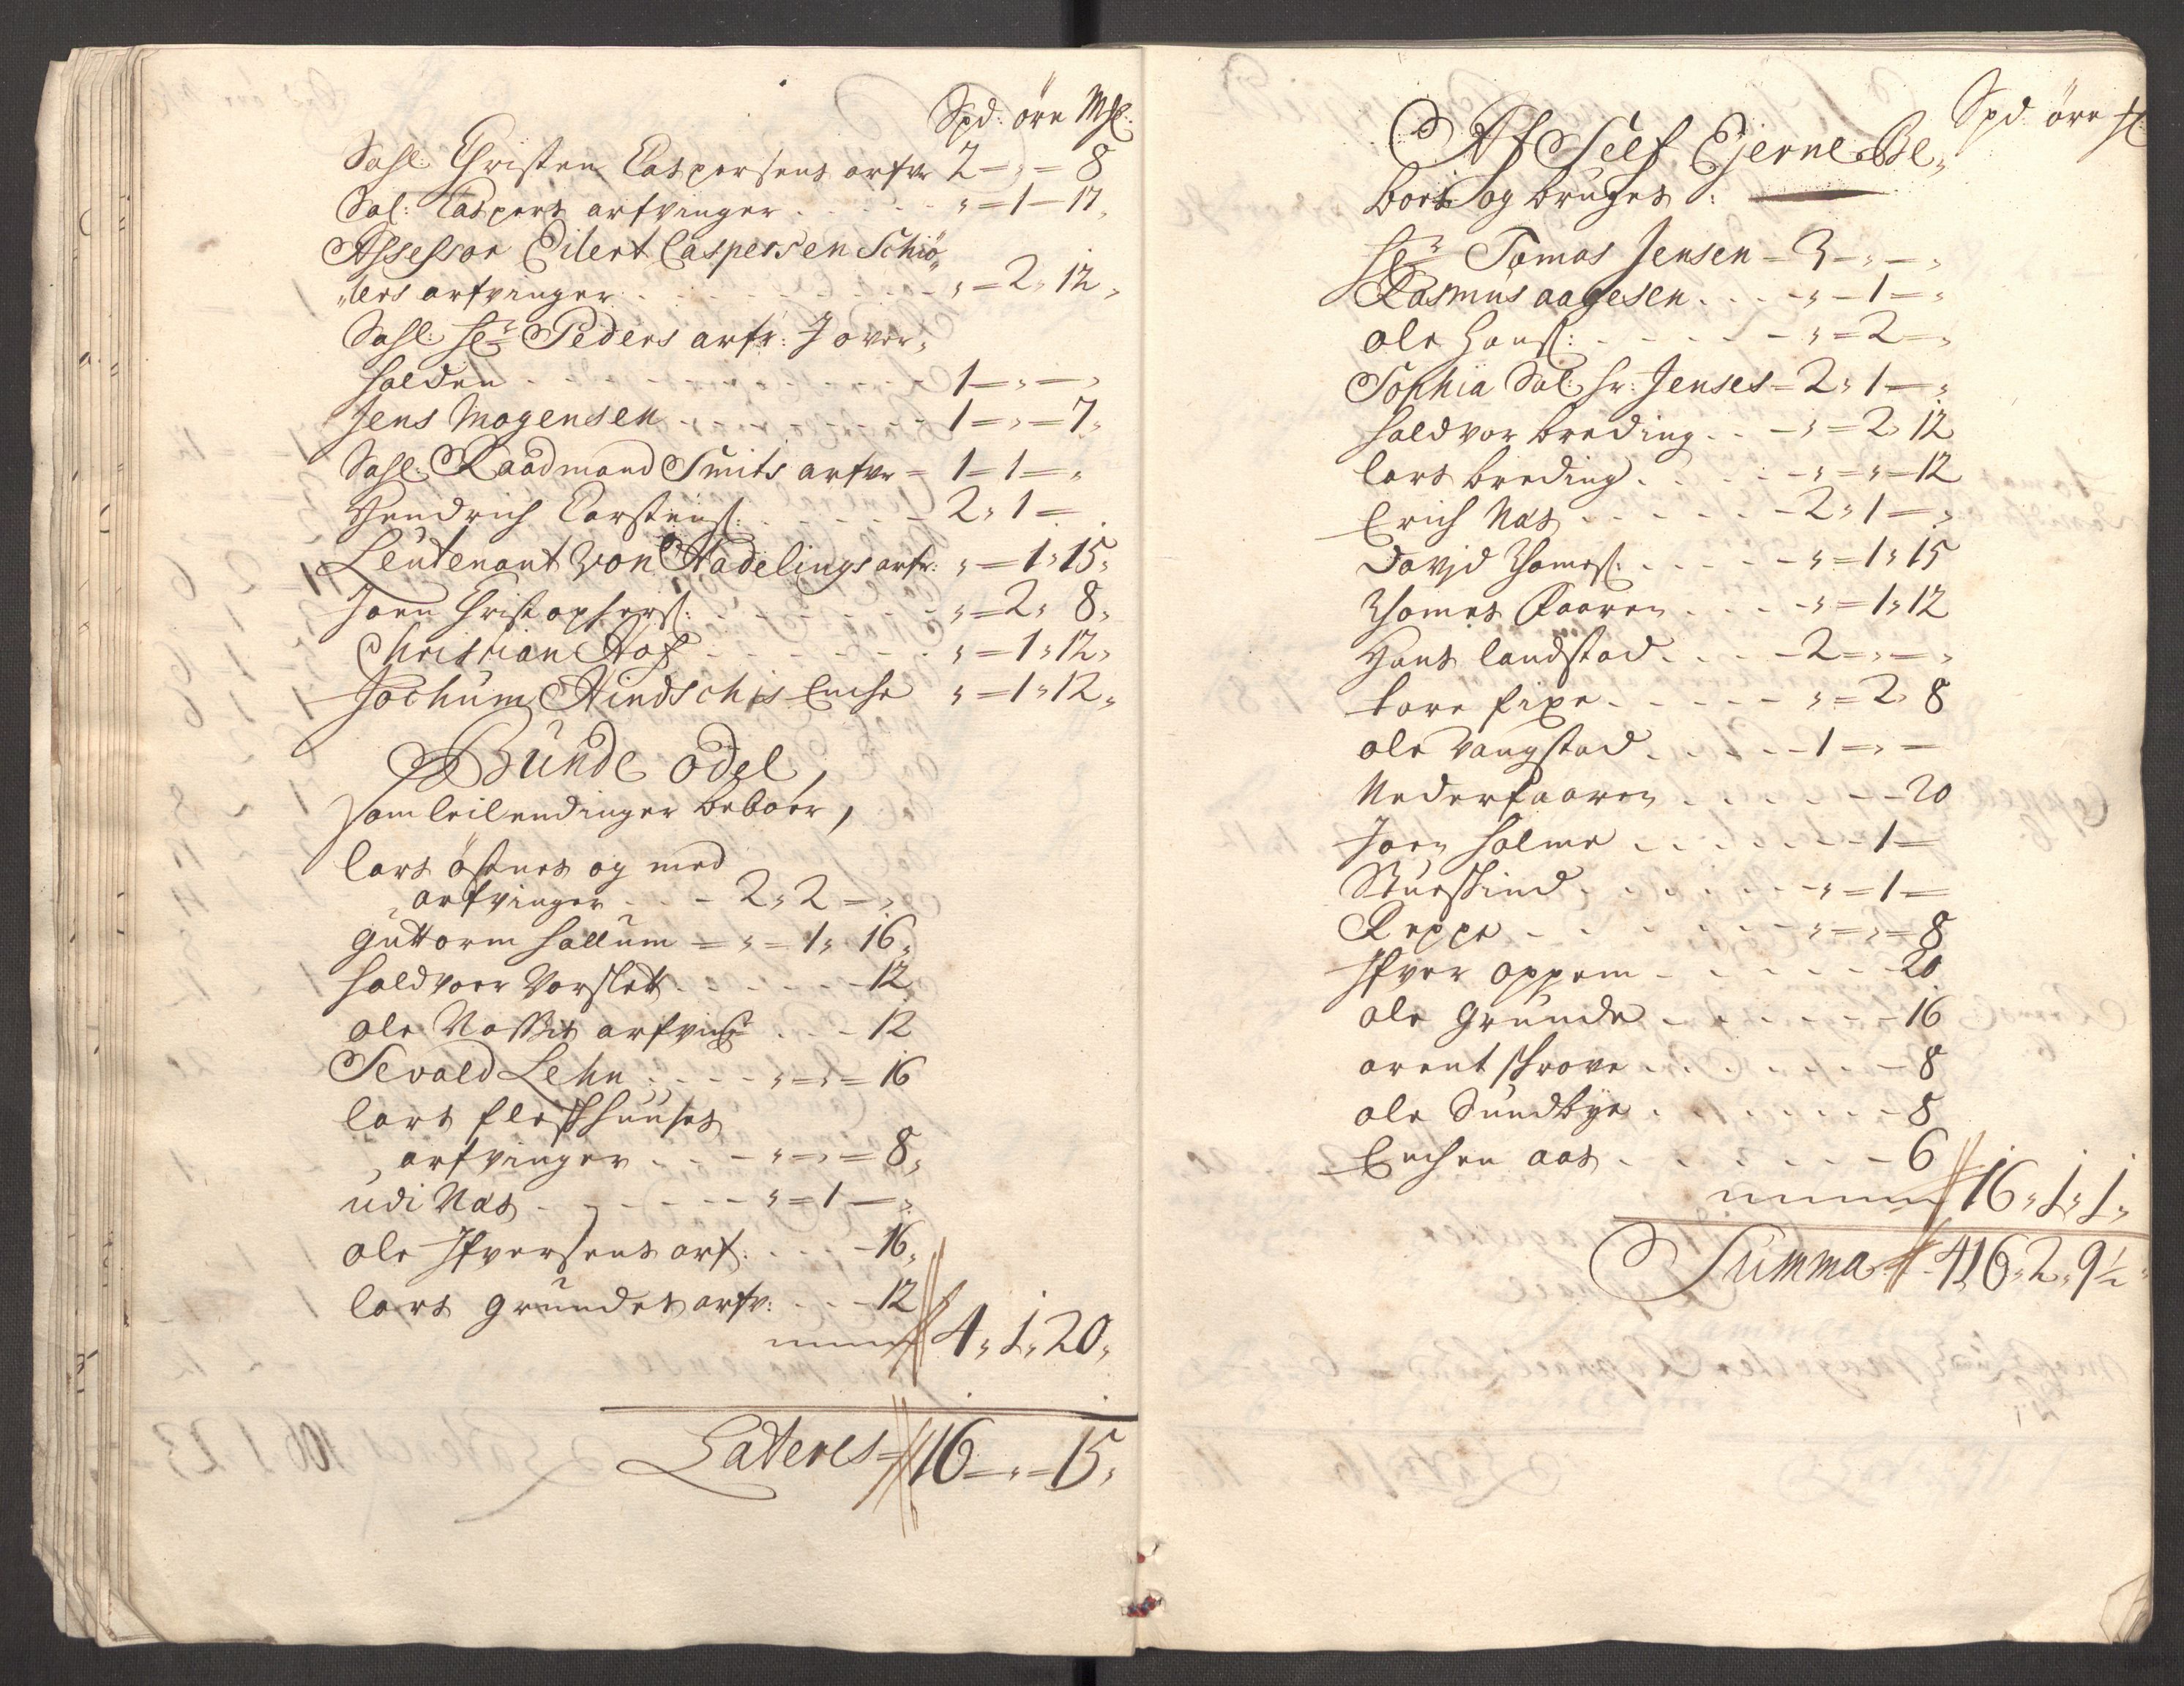 Spd: öre Mȷl:
Sahl: Christen Caspersens arfvr 2 – „ = 8
Sal: Caspers arfvinger . . . . . „ = 1 – 17„
Assessor Eilert Caspersen Schiö„
„lers arfvinger . . . . . . . – „ = 2„ 12„
Sahl: Hr Peders arfr: J over„
halden . . . . . . . . . 1 – „ – „
Jens Mogensen . . . . . . . 1 = „ = 7„
Sahl: Raadmand Smits arfvr = 1 – 1 = „
Hendrich Carstens: . . . . . – 2„ 1 =
Leutenant von Hadelings arfr: „ = 1„ 15„
Joen Christophers: . . . . . „ = 2„ 8„
Christian Hof . . . . . . . „ = 1„ 12„
Jochum Hindschis Enche „ = 1„ 12„
Bunde odel,
som leilendinger beboer,
lars östnes og med
arfvinger . . – 2„ 2 – „
Guttorm hallum = „ = 1„ 16„
haldvoer Vorslett . . . . – 12
ole arfving . . – 12
Sevald Lehn . . . – „ = „ = 16
lars fleskhuuses
arfvinger . . – „ = „ = 8„
udi Næs . . . . – – „ = 1 – „
ole Ifversens arf: . . . – 16„
lars Grundes arfv: . . – 12
4„ 1„ 20„
Lateres 16 – „ = 15„
Spd öre
Af Self Ejerne Be„
boes og bruges :
Hr Tomas Jensen – 3 – „ – „
Rasmus aagesen . . . – „ – 1 – „
ole Hans: . . . . . – „ = 2 – „
Sophia Sal: Hr: Jenses – 2„ 1 – „
haldvor breding . . – „ = 2„ 12
lars breding . . . . – „ = „ – 12
Erich Næs . . . . . – 2„ 1 – „
Davjd Thomes: . . . . – „ = 1„ 15
Thomes Faaren . . . . – „ = 1„ 12
Hans landstad . . . – 2 = „ – „
tore fixe . . . . . – „ = 2„ 8
ole Vangstad . . . . – 1 = „ –
Nederfaaren . . . . . – – 20
Joen holme . . . . . . – 1 –
Stueskind . . . . . . – „ = 1 =
Reppe . . . . . . – „ = „ = 8
Ifver oppem . . . . . . – 20
ole Grunde . . . . . . – 16
arent skrove . . . . . . – 8
ole Sundbye . . . . . . – 8
Enchen aas . . . . . . – 6
16„ 1„ 1„
Summa 416„ 2„ 9½